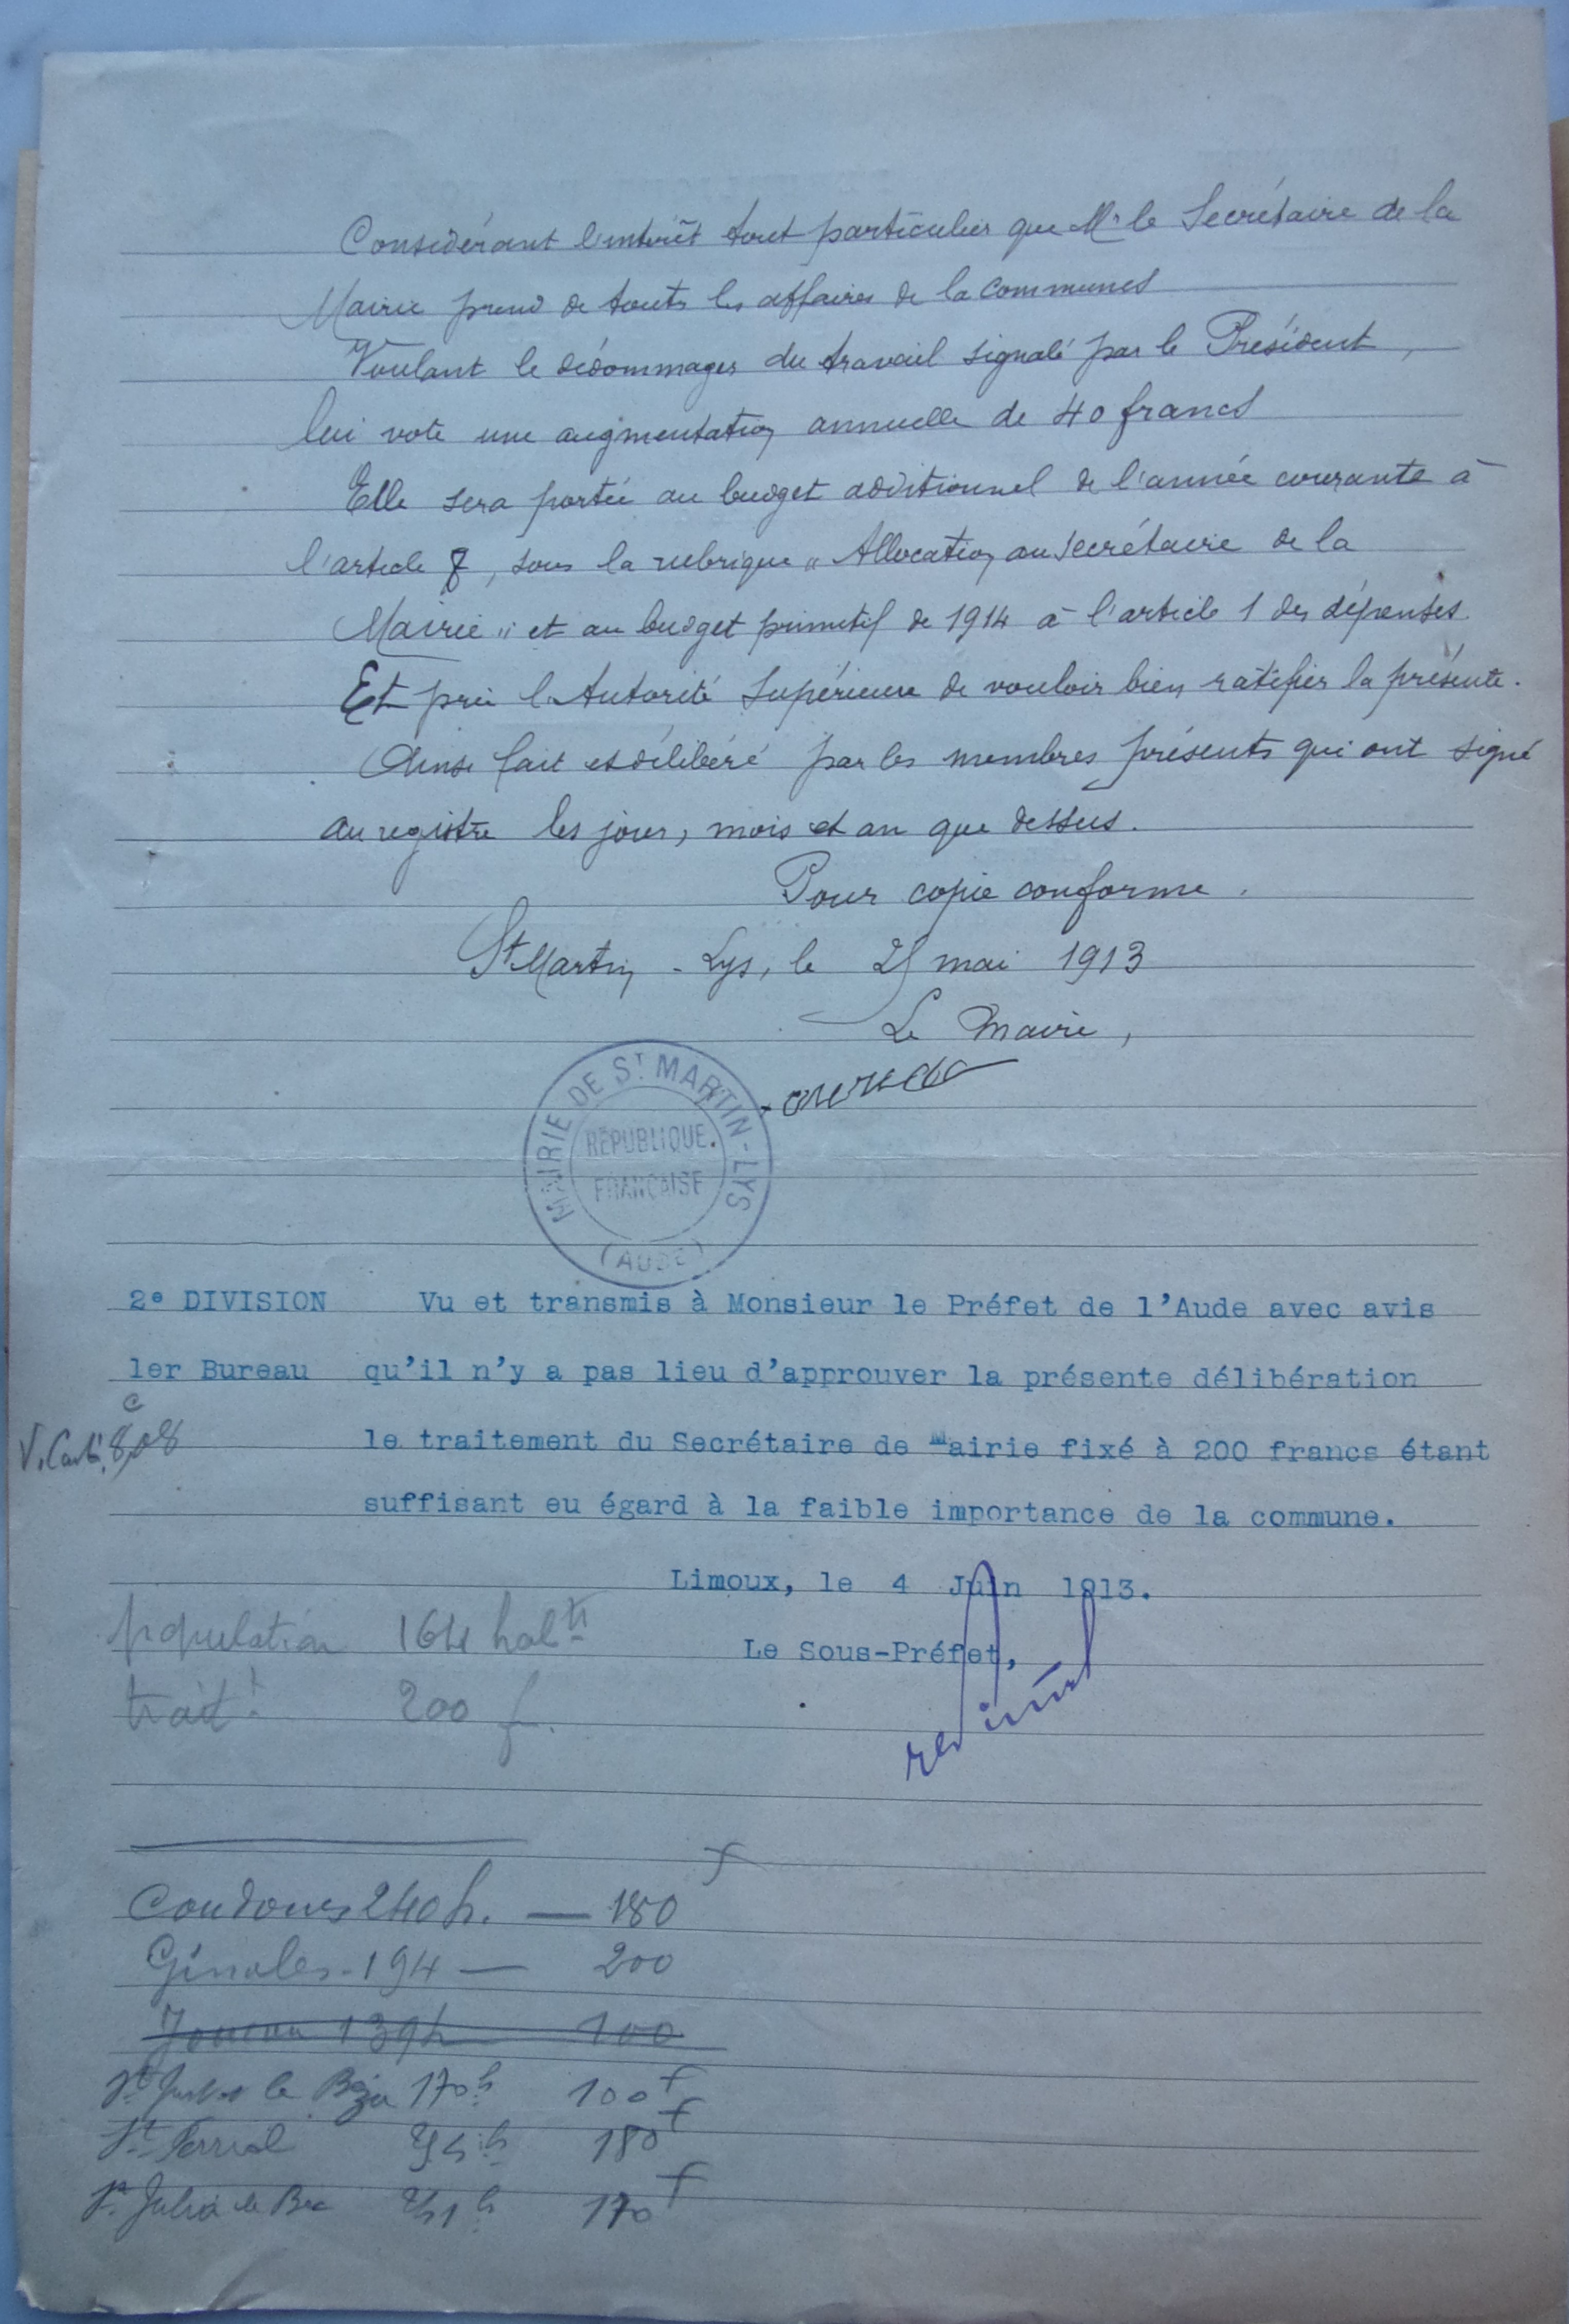 Considérant l'intérêt tout particulier que Mr le Secrétaire de la
Mairie prend de touts les affaires de la communes
Voulant le dédommager du travail signalé par le Président,
lui vote une augmentation annuelle de 40 francs
Elle sera portée au budget additionnel de l'année courante à
l'article 7, sous la rubrique " Allocation au secrétaire de la
Mairie " et au budget primitif de 1914 à l'article 1 des dépenses.
Et prie l'Autorité Supérieure de vouloir bien ratifier la présente.
Ainsi fait et délibéré par les membres présents qui ont signé
au registre les jour, mois et an que dessus.
Pour copie conforme.
St Martin - Lys, le 25 mai 1913
Le Maire,
MAIRIE DE ST MARTIN-LYS
RÉPUBLIQUE
FRANÇAISE
(AUDE)
2e DIVISION Vu et transmis à Monsieur le Préfet de l'Aude avec avis
1er Bureau qu'il n'y a pas lieu d'approuver la présente délibération
le traitement du Secrétaire de Mairie fixé à 200 francs étant
suffisant eu égard à la faible importance de la commune.
Limoux, le 4 Juin 1913.
Le Sous-Préfet,
population 164 habts
trait! 200 f.
f
Coudons 240 h. — 180
Ginoles - 194 — 200
Joucou 139 h 100
St Just et le Bézu 170 h 100 f
St Ferriol 180 f
St Julia de Bec 170 f